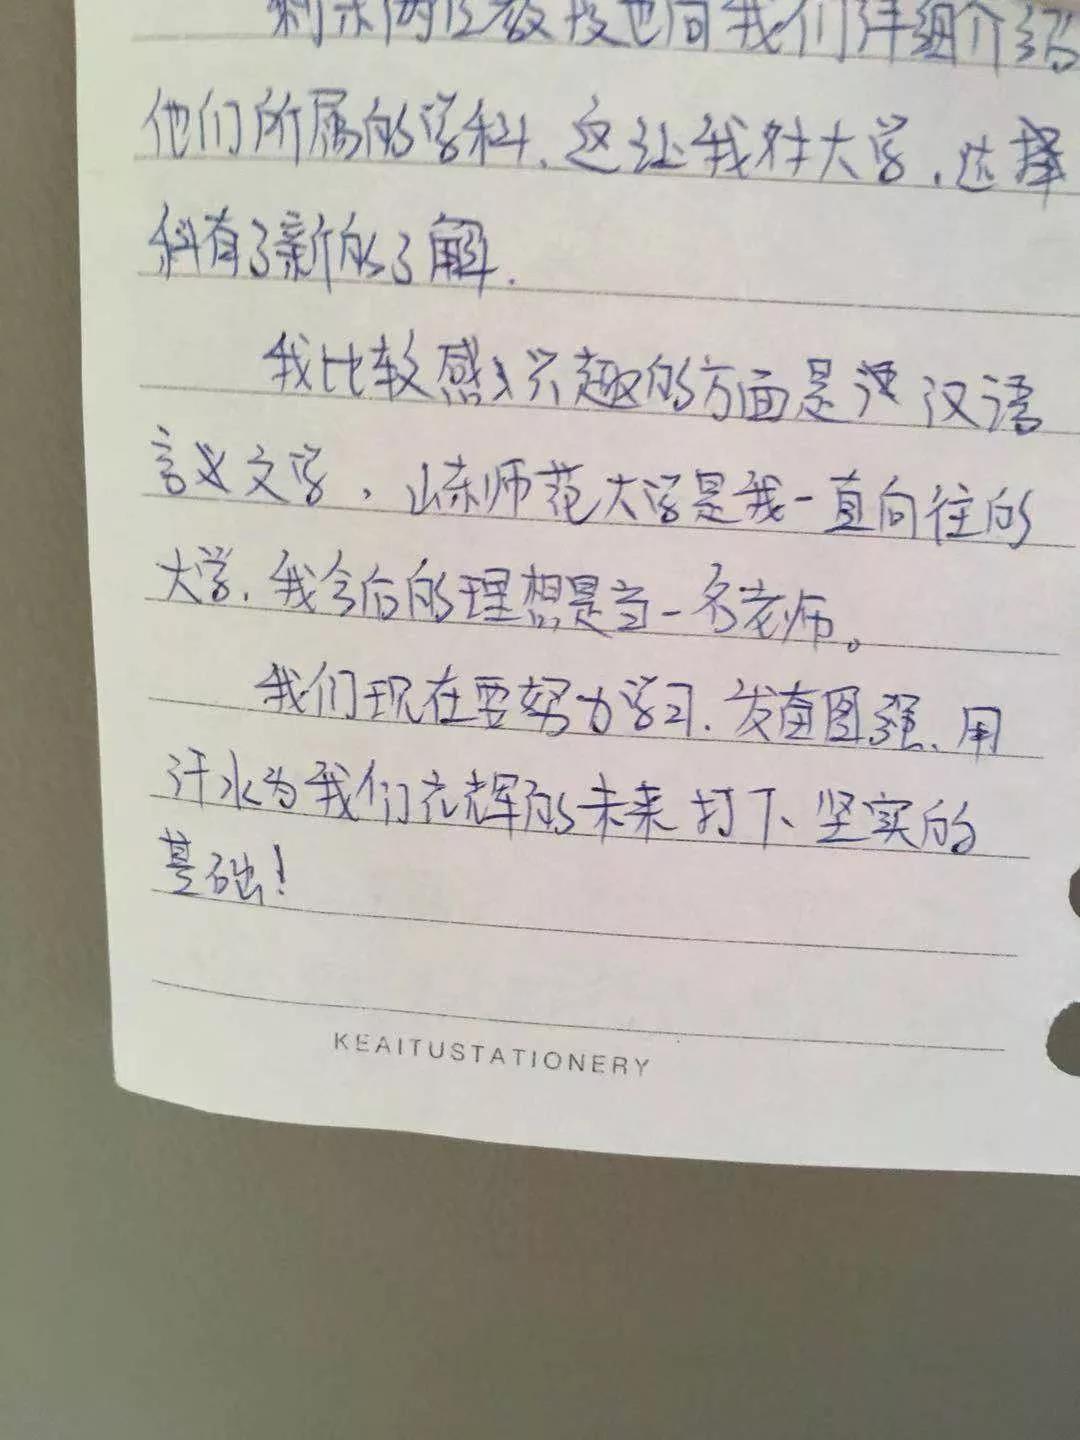 剩余两位教授也向我们详细介绍
他们所属的学科,这让我对大学,选择
科有了新的了解.
我比较感兴趣的方面是汉语
言文学,山东师范大学是我一直向往的
大学,我今后的理想是当一名老师。
我们现在要努力学习,发奋图强,用
汗水为我们光辉的未来打下坚实的
基础!
KEAITUSTATIONERY